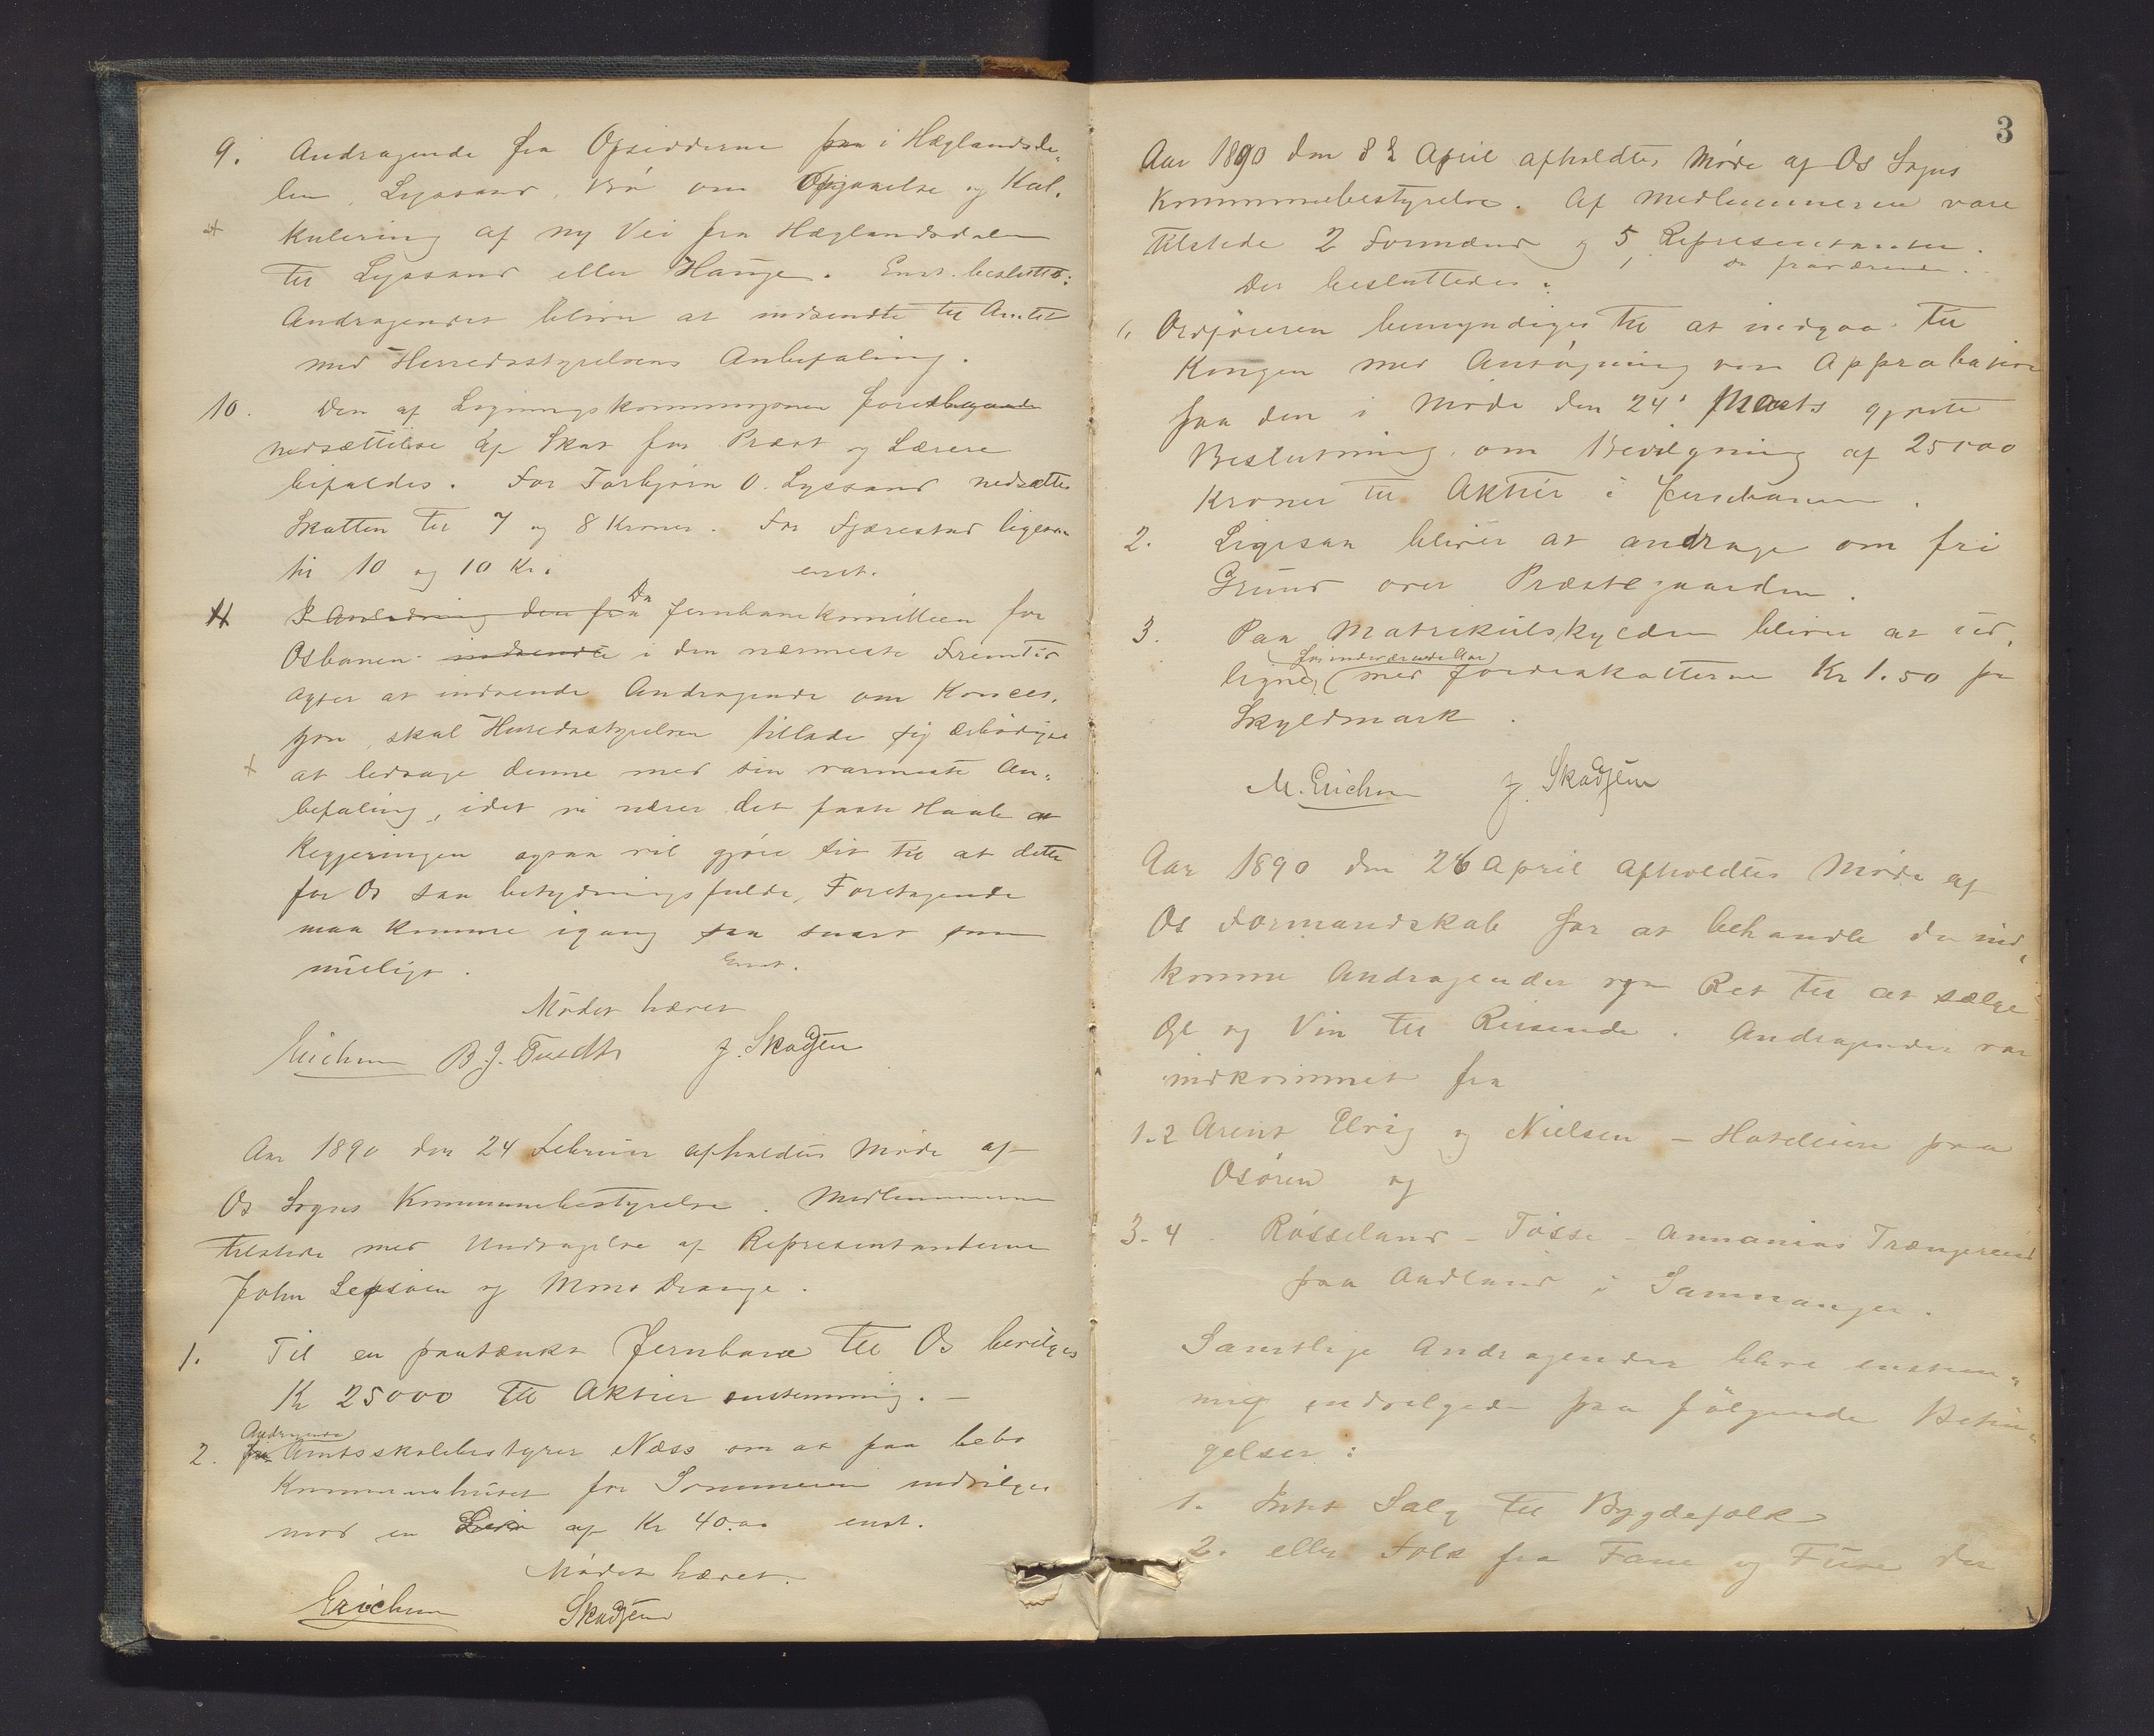 9. Andragende fra Opsidderne paa i Hæglandsda-
len, Lyssand, Bø om Opgaaelse og Kal-
kulering af ny Vei fra Hæglandsdalen
til Lyssand eller Hauge. Enst. besluttet:
Andragendet bliver at indsendte til Amtet
med Herredsstyrelsens Anbefaling.
10. Den af Ligningskommissjonen foreslagaede
nedsættelse af Skat for Præst og Lærere
bifaldes. For Torbjørn O. Lyssand nedsættes
Skatten til 7 og 8 Kroner. For Fjærestad ligesaa
til 10 og 10 Kr. enst.
11 I Anledning den fra Da Jernbanekomitteen for
Osbanen indsendte i den nærmeste Fremtid
agter at indsende Andragende om Konces-
sjon, skal Herredsstyrelsen tillade sig ærbødigst
at ledsage denne med sin varmeste An-
befaling, idet vi nærer det faste Haab at
Regjeringen ogsaa vil gjøre sit til at dette
for Os saa betydningsfulde, Foretagende
maa komme igang saa snart som
muligt. Enst.
Mødet hævet
Erichsen B. J. Tuedt J. Skadsem
Aar 1890 den 24 Februar afholdtes Møde af
Os Sogns Kommunebestyrelse. Medlemmerne
tilstede med Undtagelse af Repræsentanterne
John Lepsøen og Mons Drange.
1. Til en paatænkt Jernbane til Os bevilges
Kr 25000 til Aktier enstemmig. -
Andragende
2. fra Amtsskolebestyrer Næss om at faa bebo
Kommunehuset for Sommeren indvilges
mod en Leie af Kr 40.00 enst.
Mødet hævet.
Erichsen Skadsem
3
Aar 1890 den 8de April afholdtes Møde af Os Sogns
Kommunebestyrelse. Af Medlemmerne vare
tilstede 2 Formænd og 5 Repræsentanter.
1 do fraværende.
Der besluttedes:
1. Ordføreren bemyndiges til at indgaa til
Kongen med Ansøgning om Approbation
paa den i Møde den 24' Marts gjorte
Beslutning om Bevilgning af 25000
Kroner til Aktier i Jernbanen.
2. Ligesaa bliver at andrage om fri
Grund over Præstegaarden.
3. Paa Matrikulskylden bliver at ud-
for indeværende Aar
ligne, med Fordeskatterne Kr 1.50 pr
Skyldmark.
M. Erichsen J. Skadsem
Aar 1890 den 26 April afholdtes Møde af
Os Formandskab for at behandle de ind-
komne Andragender om Ret til at sælge
Øl og Vin til Reisende. Andragender var
indkommet fra
1-2 Arent Ulvig og Nielsen - Hoteleiere paa
Osøren og
3-4 Røsseland - Tøsse - Annanias Trængereid
paa Aadland i Samnanger.
Samtlige Andragender blive enstem-
mig indvilgede paa følgende Betin-
gelser:
1. Intet Salg til Bygdefolk
2. eller Folk fra Fane og Fuse der